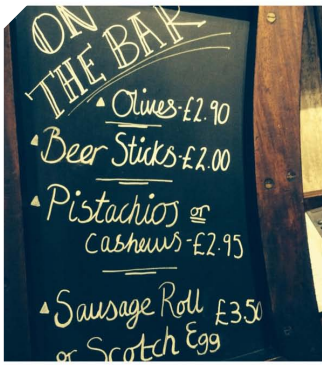 ON
THE BAR
Olives-£2.90
Beer Sticks-£2.00
Pistachios or
cashews-£2.95
Sausage Roll £3.50
or Scotch Egg